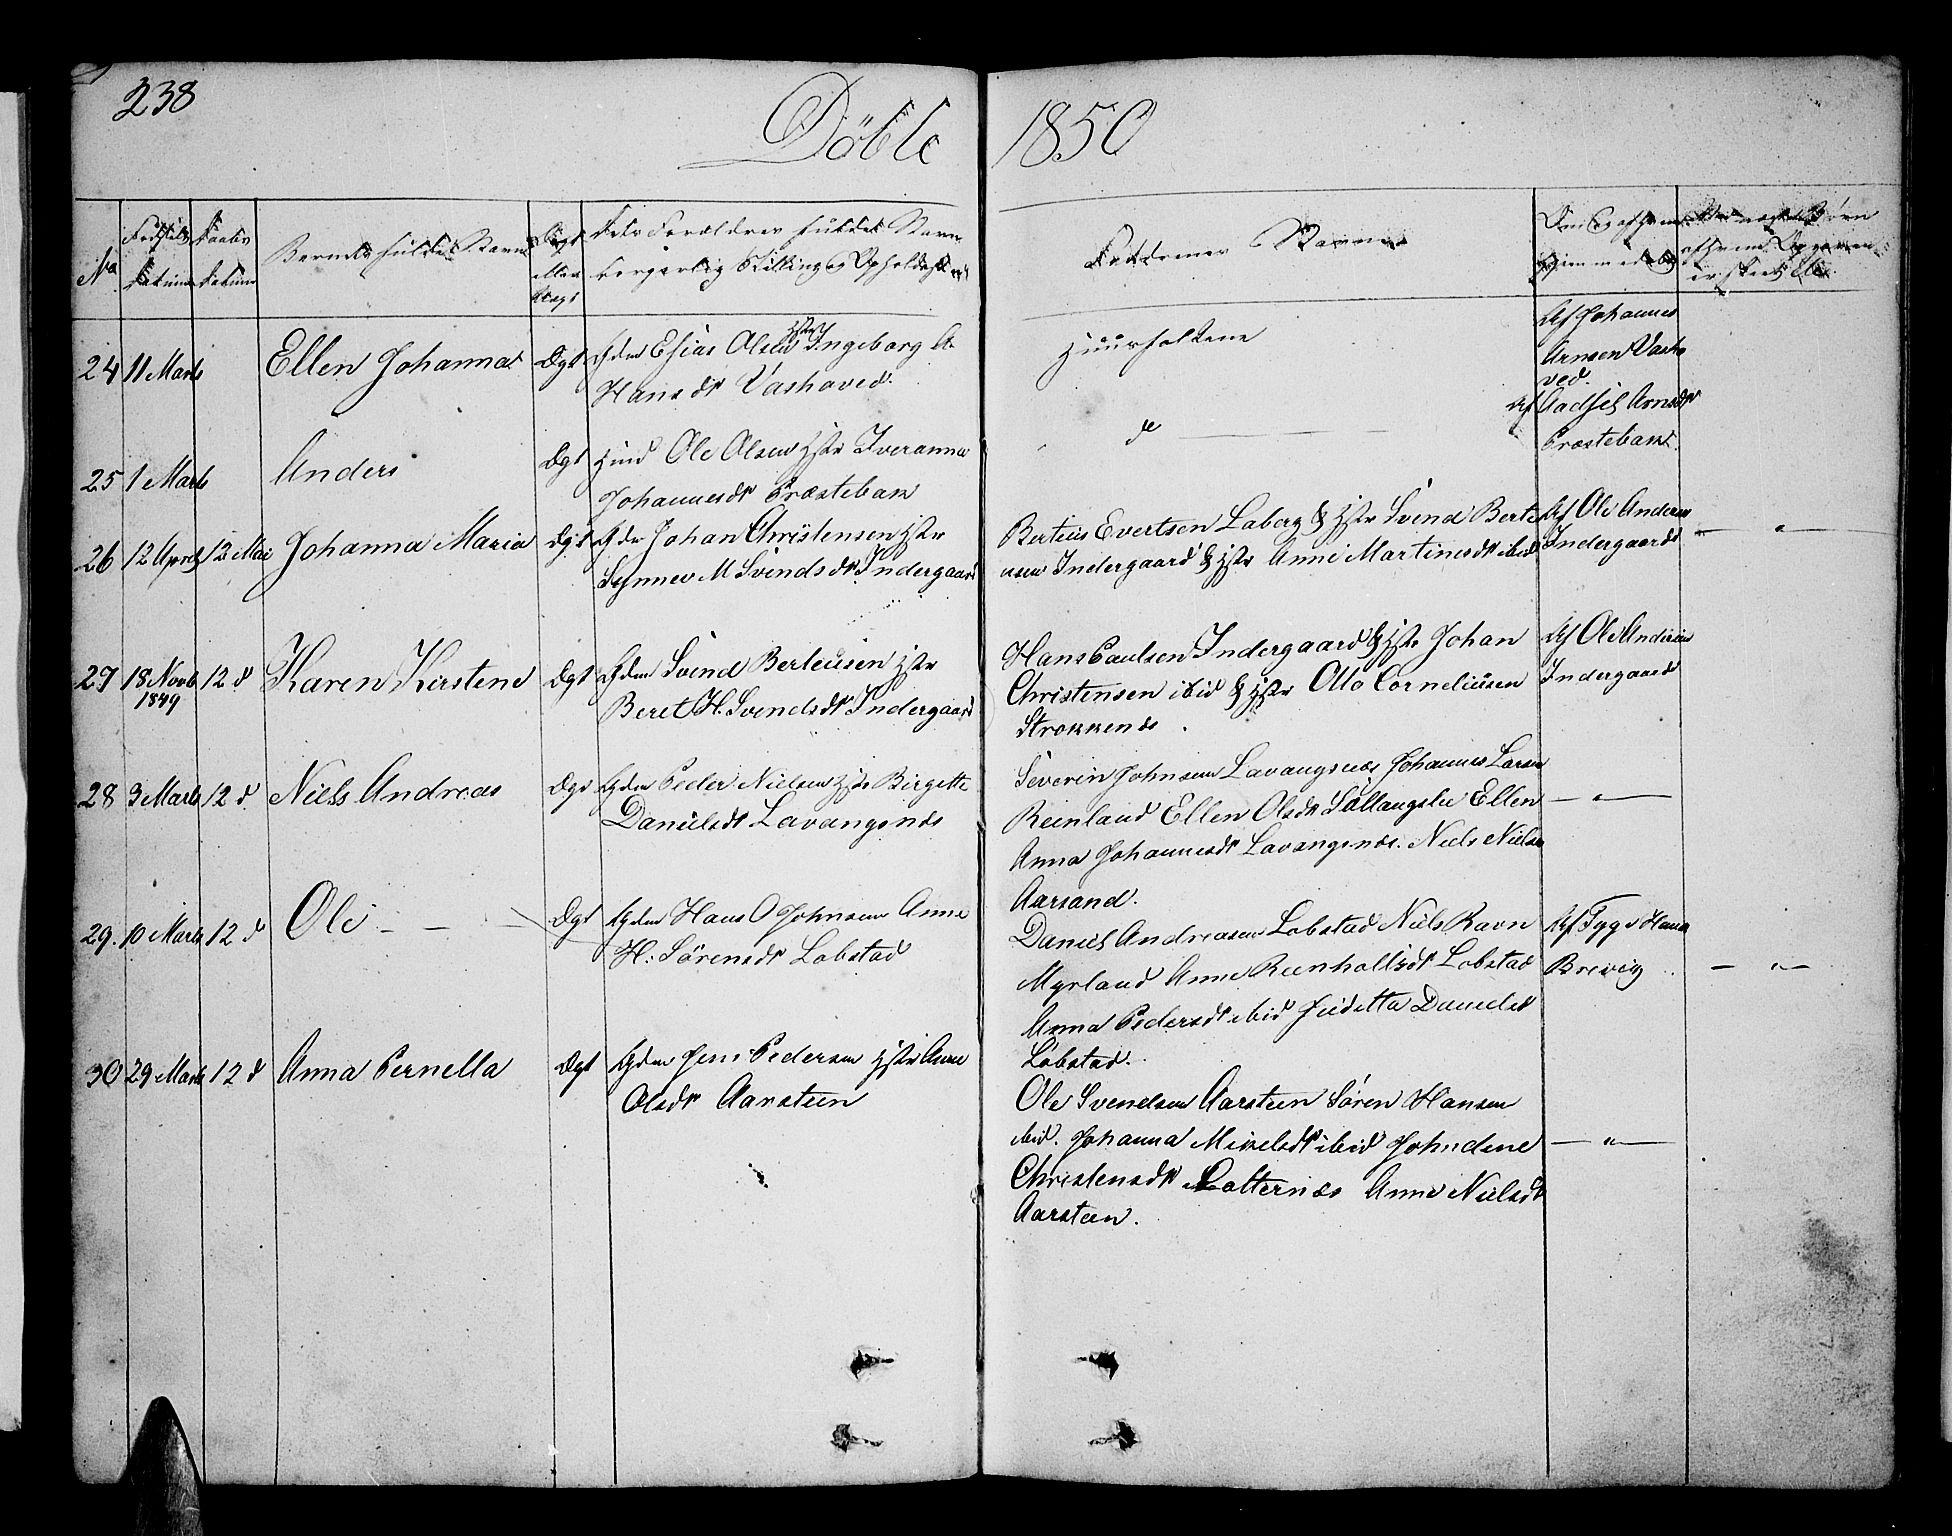 238
Döbte 1850
No
Fødsels Datum
Daabs Datum
Barnets fulde Navn
Ægt eller Uægt
Dets Forældres fulde Navn
borgerlig Stilling og Opholdssted
Faddernes Navne
24 11 Marts Ellen Johanna Ægt Gdm Esias Olsen Hstr Ingeborg A
Hansdr Vashaved.
Huusfolkene
Af Johannes
Arnsen Vasha
ved.
25 1 Marts Anders Ægt Hmd Ole Olsen Hstr Iveranna
Johannesdr Præstebak
do
Af Aadsil Arnsdr
Præstebak
26 12 April 12 Mai Johanna Maria Ægt Gdm Johan Christensen Hstr
Synnev M Svendsdr Indergaard
Bertius Evertsen Laberg & Hstr Svend Berte
usen Indergaard & Hstr Anne Martinesdr ibid
Af Ole Andersen
Indergaard
27 18 Novb 1849 12 d Karen Kirstene Ægt Gdm Svend Berteusen Hstr
Beret H. Svendsdr Indergaard
Hans Paulsen Indergaard & Hstr Johan
Christensen ibid & Hstr Otto Corneliusen
Strokkenes
Af Ole Andersen
Indergaard
28 3 Marts 12 d Niels Andreas Ægt Gdm Peder Nielsen Hstr Birgitte
Danielsdr Lavangsnæs
Severin Johnsen Lavangsnæs Johannes Larsen
Reinland Ellen Olsdr Sallangslie Ellen
Anna Johannesdr Lavangsnæs. Niels Nielsen
Aarsand.
29. 10 Marts 12 d Ole Ægt Gdm Hans O Johnsen Anne
H: Sörensdr Lobstad
Daniel Andreasen Lobstad Niels Ravn
Myrland Anne Reinholtsdr Lobstad
Anna Pedersdr ibid Fredetta Danielsdr
Löbstad.
Brevig
30 29 Marts 12 d Anna Pernella Ægt Gdm Jens Pedersen Hstr Anne
Olsdr Aarsteen
Ole Svendsen Aarsteen Sören Hansen
ibid. Johanna Mikelsdr ibid Johndine
Christensdr Latternæs Anne Nielsdr
Aarsteen.